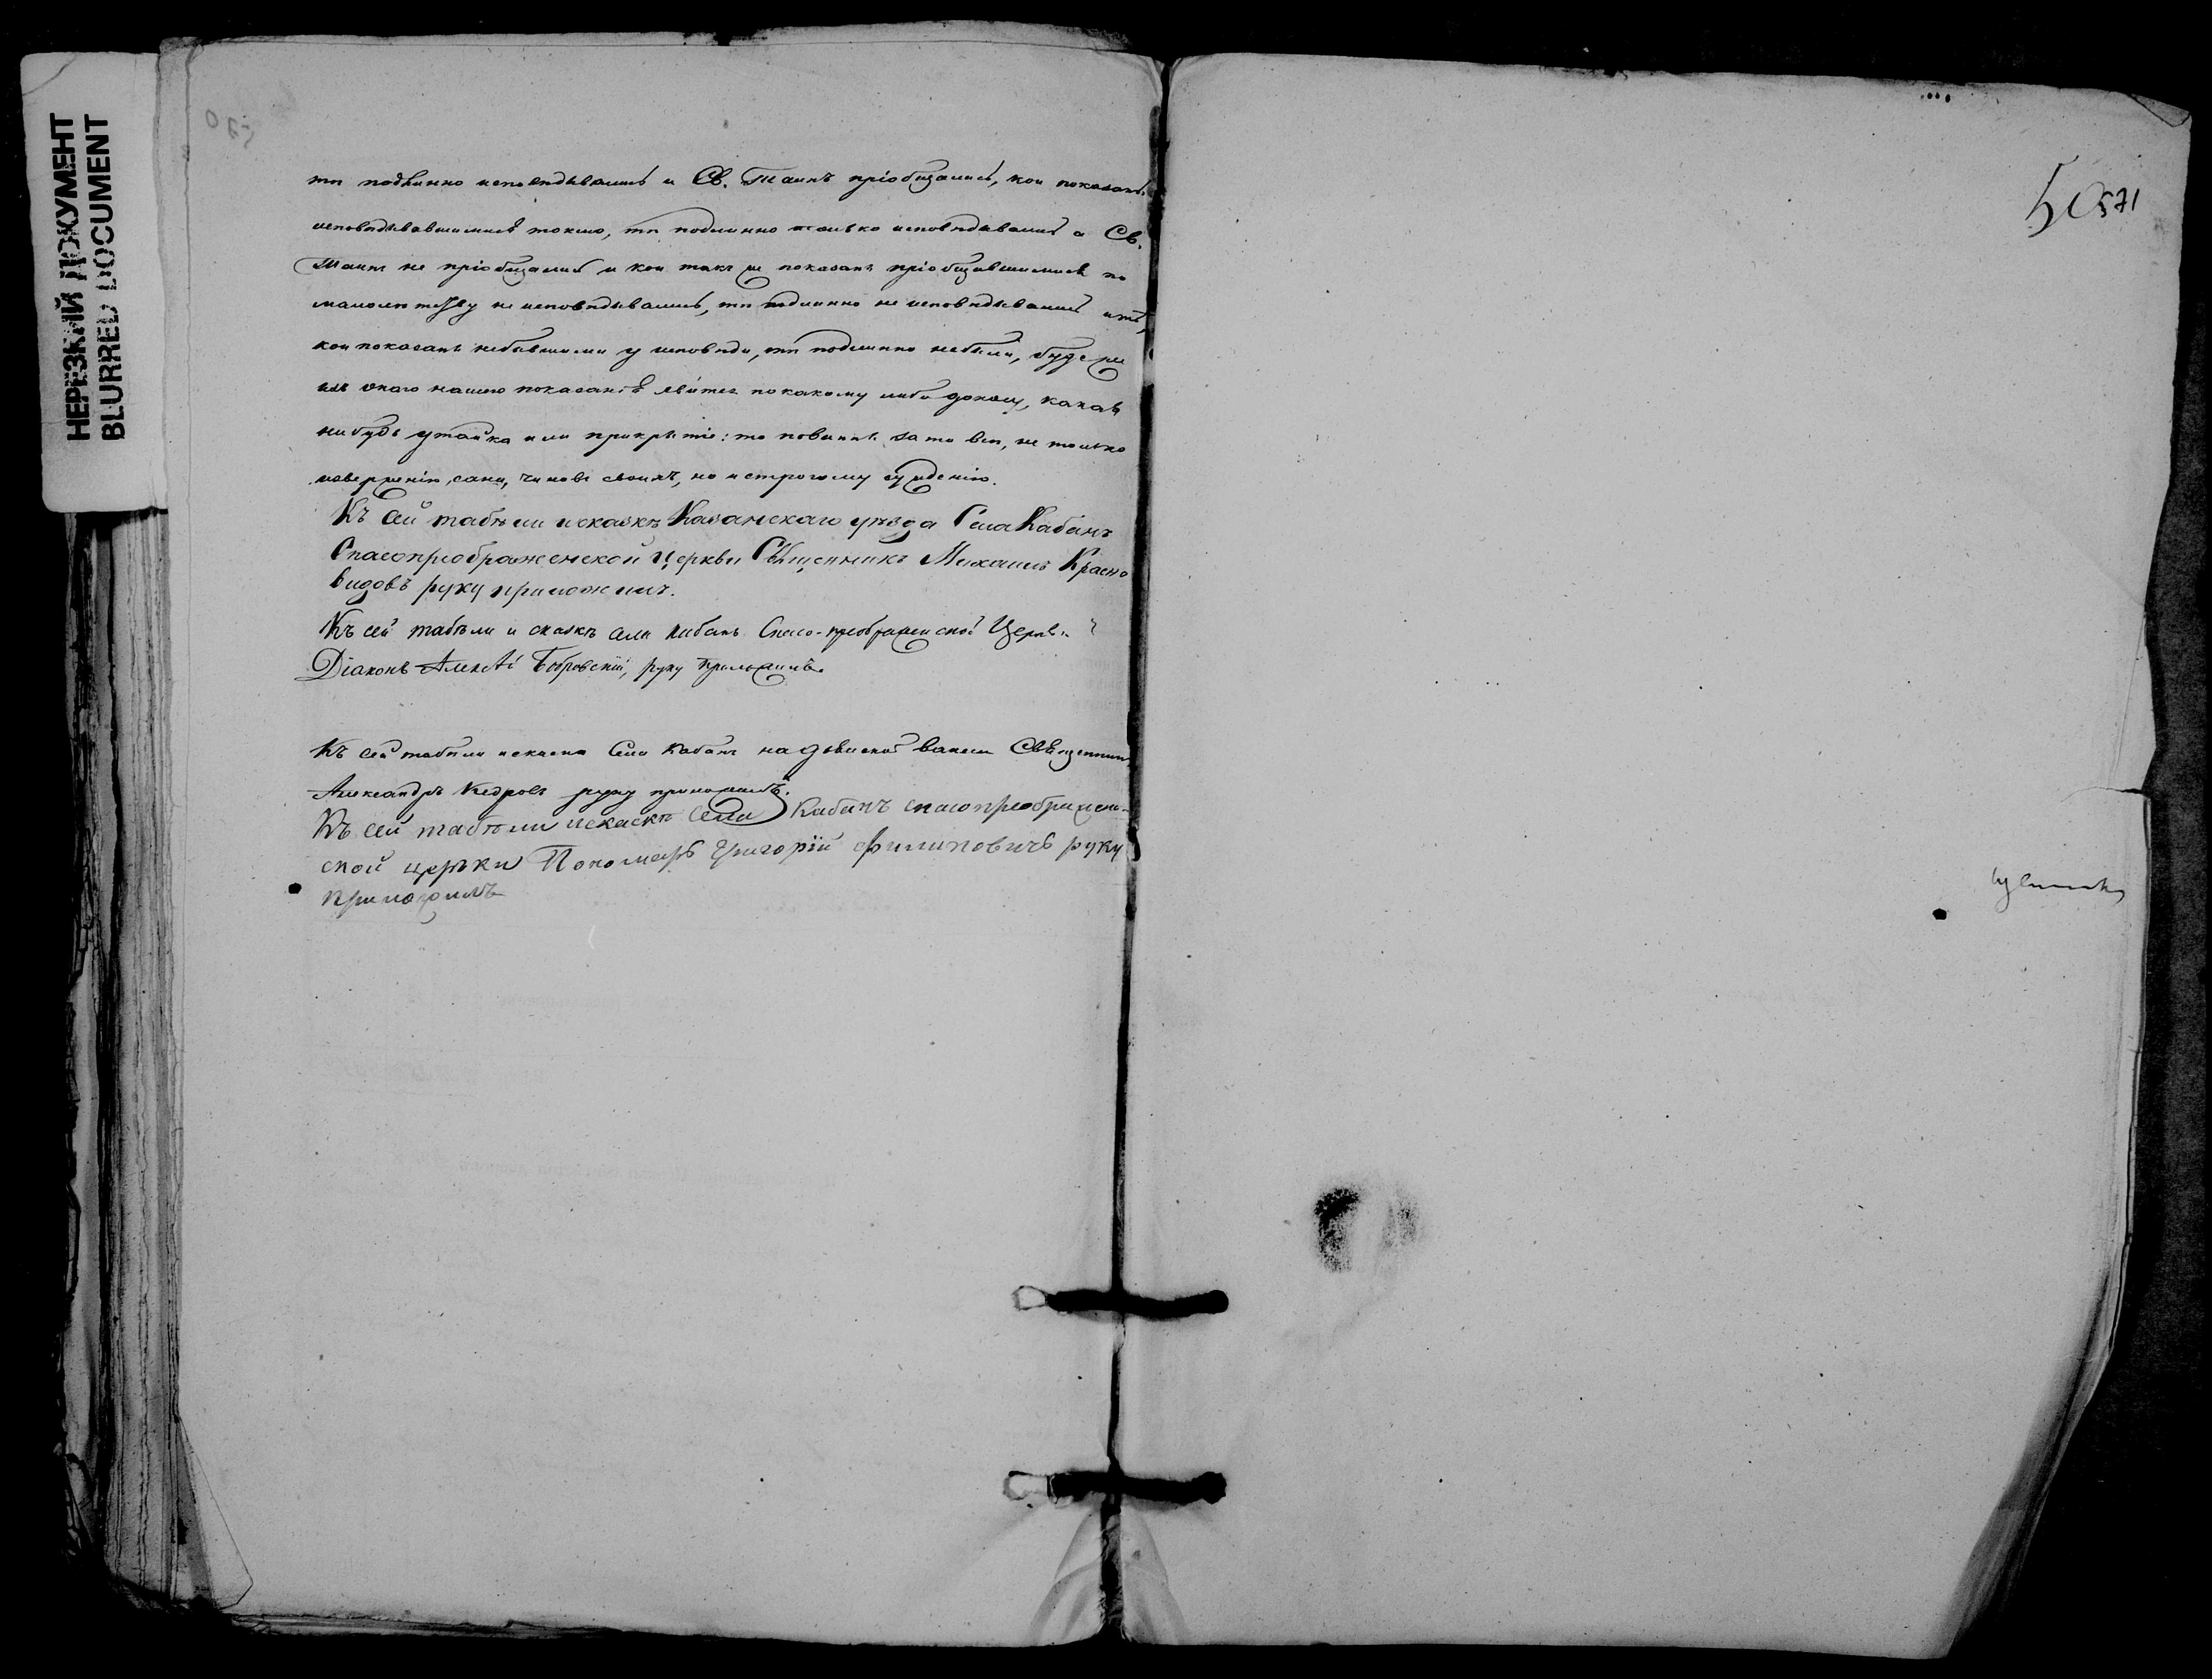 НЕРЕЗКИЙ ДОКУМЕНТ
BLURRED DOCUMENT
тѣ подлинно исповѣдывались и Св. Таинъ пріобщались, кои показаны
исповѣдывавшимися токмо, тѣ подлинно только исповѣдывались а Св.
Таинъ не пріобщались и кои такъ же показаны пріобщившимися по
малолетству не исповѣдывались, тѣ подлинно не исповѣдывались и тѣ,
кои показаны небывшими у исповѣди, тѣ подлинно небыли, буде же
изъ онаго нашего показанія явится по какому либо доносу, какая
нибудь утайка или прикрытіе: то повинны за то всѣ, не только
изверженію сана, чиновъ своихъ, но и строгому сужденію.
Къ сей табѣли и сказкѣ Казанскаго уѣзда Села Кабанъ
Спасопреображенской Церкви Священникъ Михаилъ Красно
видовъ руку приложилъ.
Къ сей табѣли и сказкѣ села Кабанъ Спасо-преображенской Церкви
Діаконъ Алексѣй Бобровскій, руку приложилъ.
Къ сей табѣли и сказкѣ Села Кабанъ на дьяконской вакансіи Священникъ
Александръ Кедровъ руку приложилъ.
Къ сей табѣли искаскѣ Села Кабанъ спасопреображен-
ской церкви Пономарь Григорій Филиповичъ руку
приложилъ
50
571